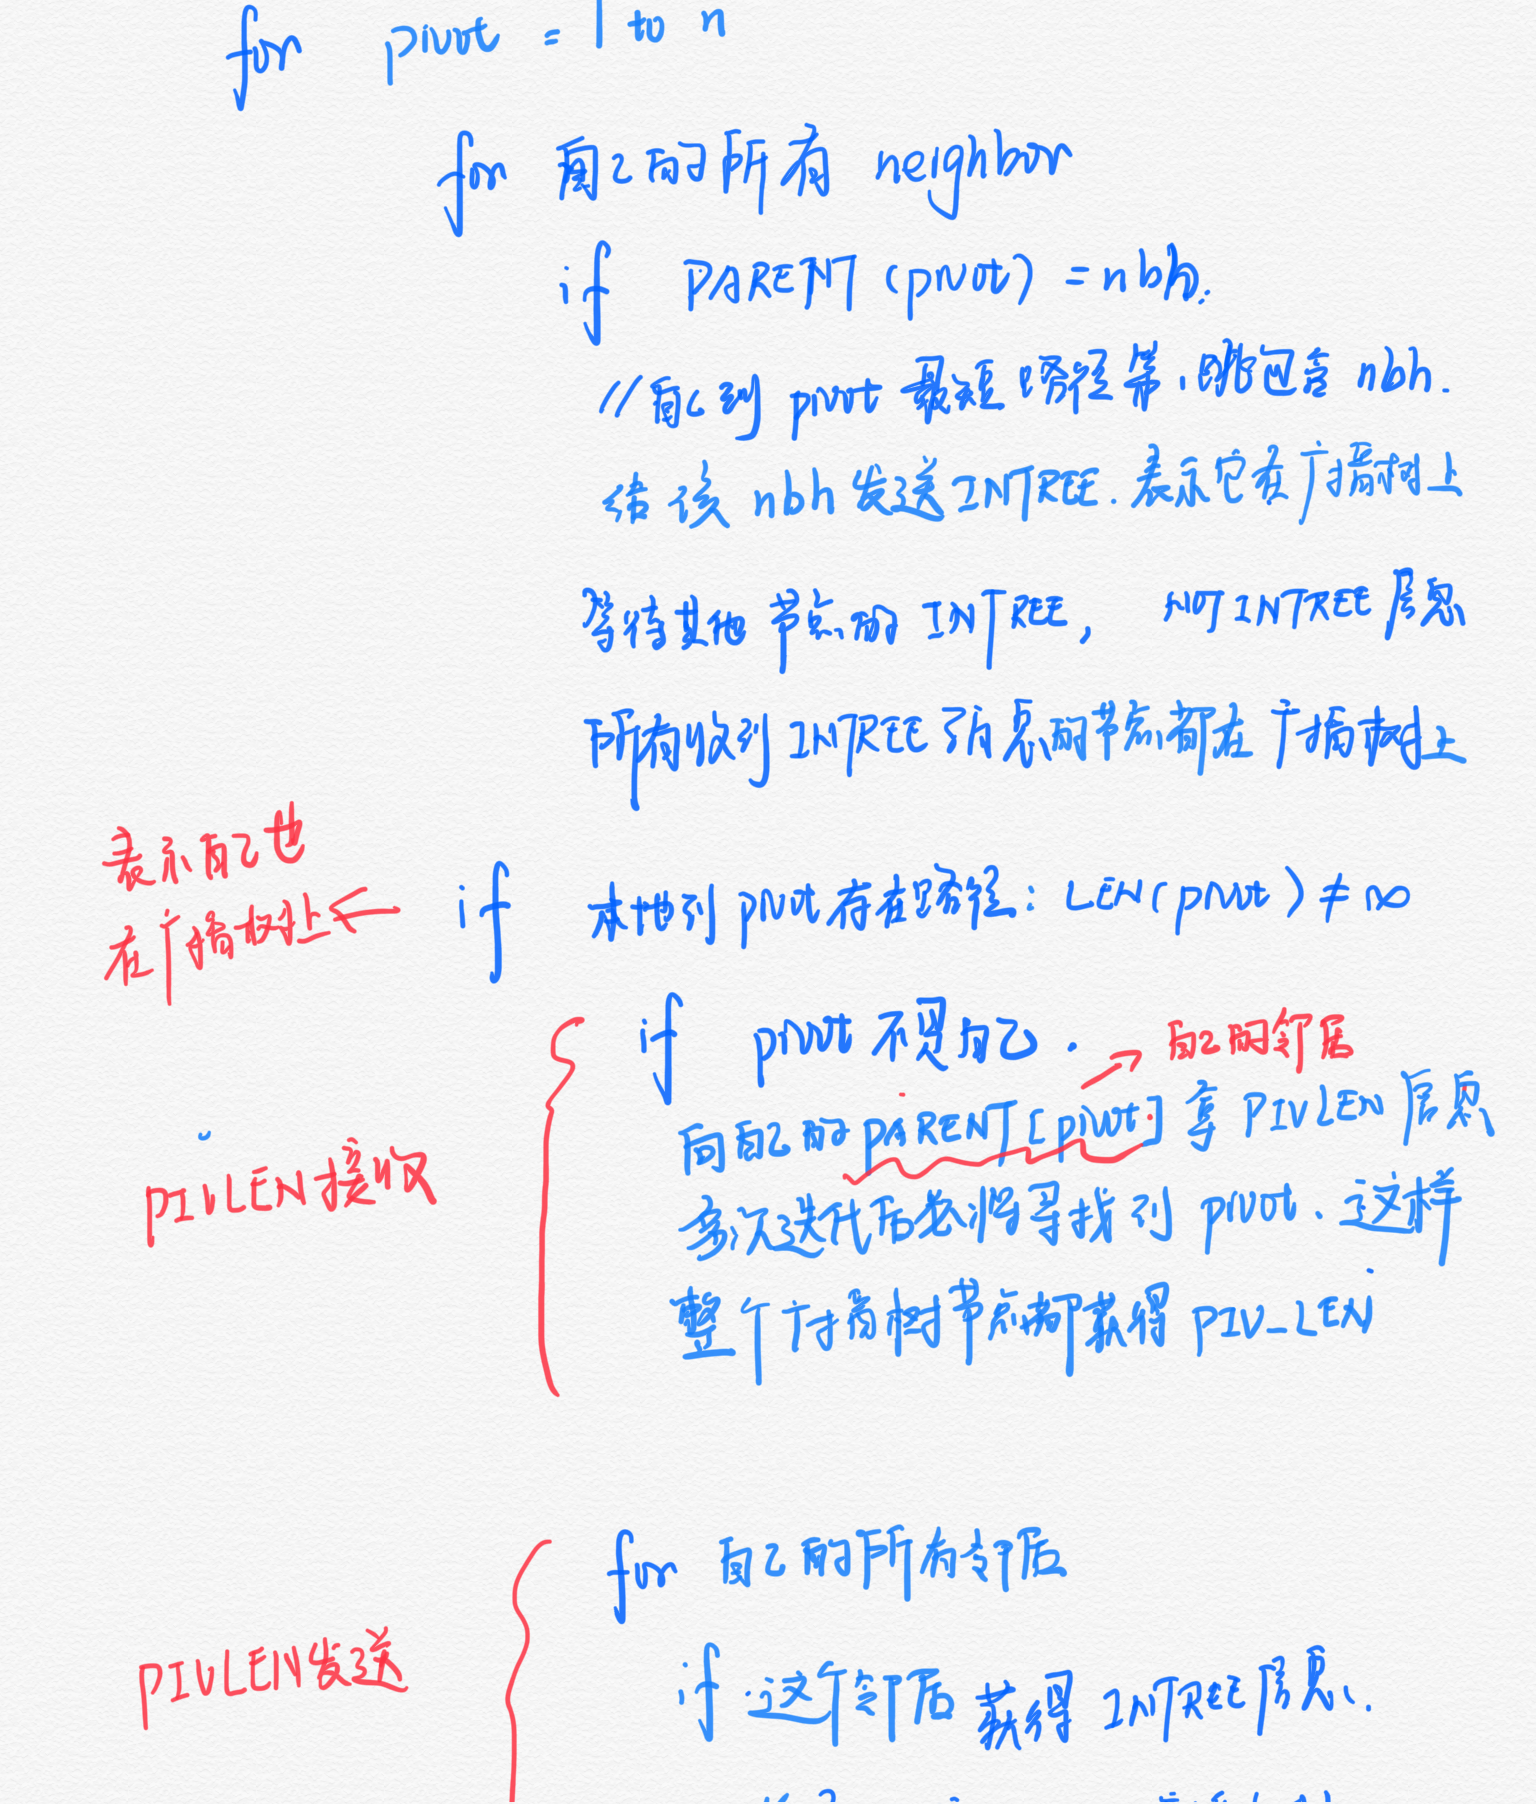 for pivot = 1 to n
for 自己的所有 neighbor
if PARENT (pivot) = nbh.
//自己到 pivot 最短路径第1跳包含 nbh.
给该 nbh 发送 INTREE. 表示它在广播树上
等待其他节点的 INTREE, NOT INTREE 信息
所有收到 INTREE 消息的节点都在广播树上
表示自己也
在广播树上 ←
if 本地到 pivot 存在路径: LEN(pivot) ≠ ∞
if pivot 不是自己.
→ 自己的邻居
向自己的 PARENT[pivot] 拿 PIVLEN 信息
PIVLEN 接收
多次迭代后必将寻找到 pivot. 这样
整个广播树节点都获得 PIV_LEN
for 自己的所有邻居
PIVLEN 发送
if 这个邻居获得 INTREE 信息.